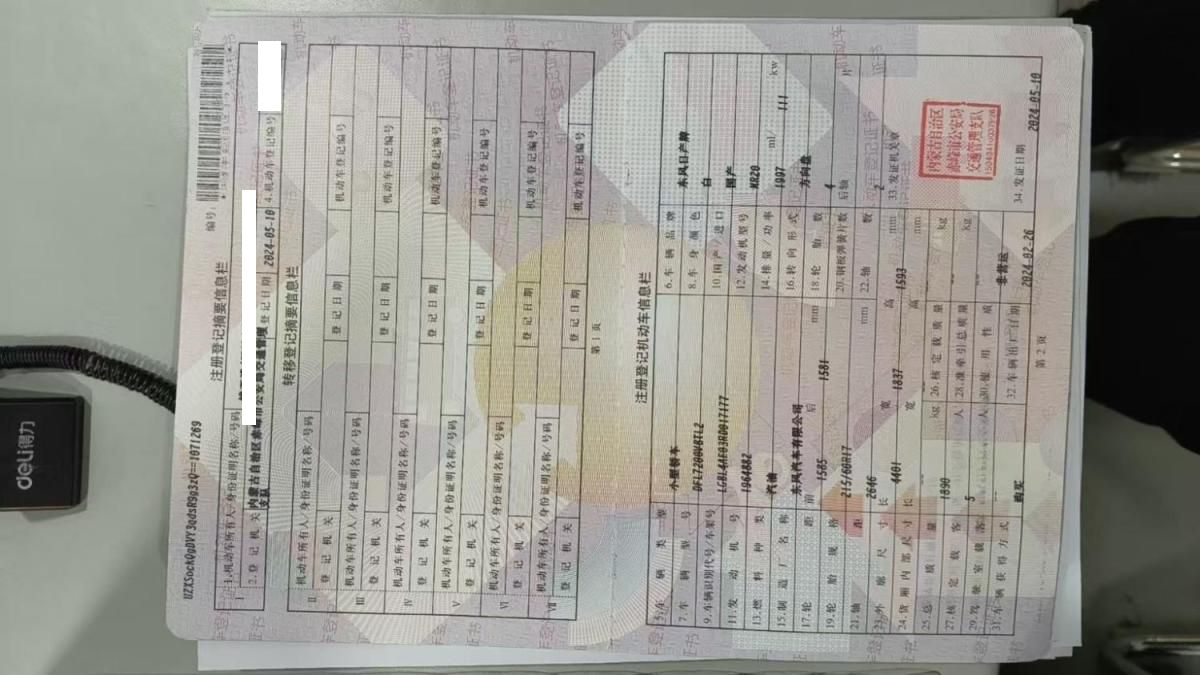 UZXSockQgDVY3qdsR9g3zQ==1071269
编号:
注册登记摘要信息栏
I
1.机动车所有人/身份证明名称/号码
2.登记机关 内蒙古自治区赤峰市公安局交通管理支队 登记日期 2024-05-10 4.机动车登记编号
转移登记摘要信息栏
II 机动车所有人/身份证明名称/号码
登记机关 登记日期 机动车登记编号
III 机动车所有人/身份证明名称/号码
登记机关 登记日期 机动车登记编号
IV 机动车所有人/身份证明名称/号码
登记机关 登记日期 机动车登记编号
V 机动车所有人/身份证明名称/号码
登记机关 登记日期 机动车登记编号
VI 机动车所有人/身份证明名称/号码
登记机关 登记日期 机动车登记编号
VII 机动车所有人/身份证明名称/号码
登记机关 登记日期 机动车登记编号
第1页
注册登记机动车信息栏
5.车辆类型 小型轿车 6.车辆品牌 东风日产牌
7.车辆型号 DFL7200V8TL2 8.车身颜色 白
9.车辆识别代号/车架号 LGBL4AE03RD017177 10.国产/进口 国产
11.发动机号 196488Z 12.发动机型号 KR20
13.燃料种类 汽油 14.排量/功率 1997 ml/ 111 kw
15.制造厂名称 东风汽车有限公司 16.转向形式 方向盘
17.轮距 前 1585 后 1581 mm 18.轮胎数 4
19.轮胎规格 215/60R17 20.钢板弹簧片数 后轴 片
21.轴距 2646 mm 22.轴数 2
23.外廓尺寸 长 4401 宽 1837 高 1593 mm 33.发证机关章
24.货厢内部尺寸 长 宽 高 mm
25.总质量 1890 kg 26.核定载质量 kg
27.核定载客 5 人 28.准牵引总质量 kg
29.驾驶室载客 人 30.使用性质 非营运
31.车辆获得方式 购买 32.车辆出厂日期 2024-02-26 34.发证日期 2024-05-10
内蒙古自治区
赤峰市公安局
交通管理支队
第2页
deli得力